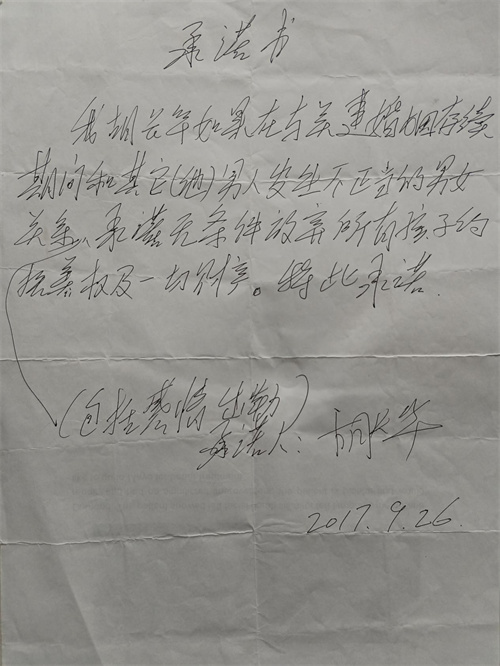 承诺书
我胡长华如果在与关建婚姻存续
期间和其它(他)男人发生不正当的男女
关系、承诺无条件放弃所有孩子的
抚养权及一切财产。特此承诺.
(包括感情出勤)
承诺人:胡长华
2017.9.26.